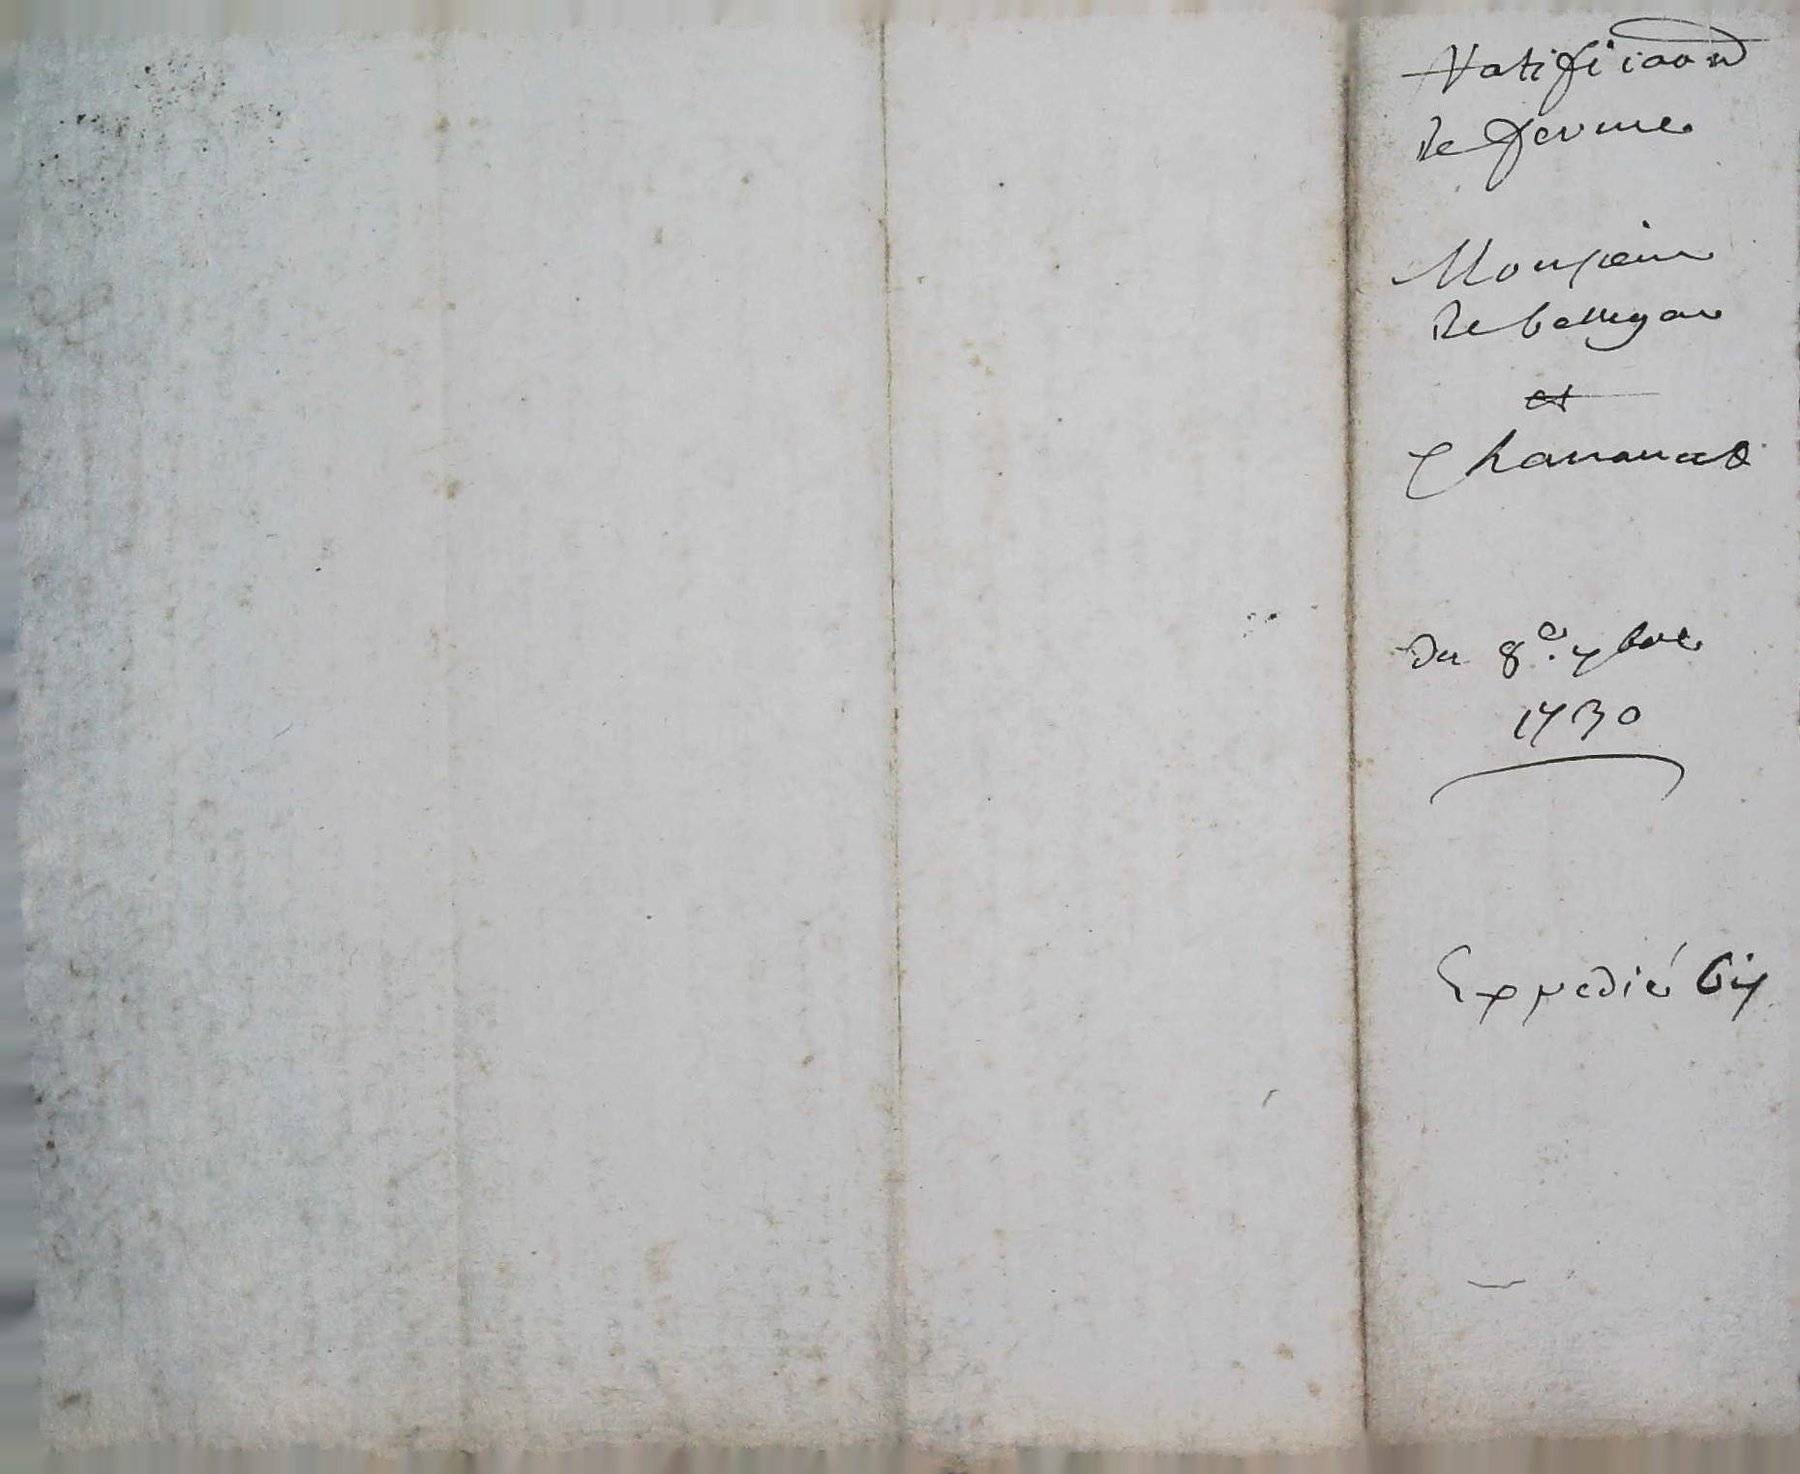 Ratification
de ferme
Monsieur
de bellegar
et
du 8e. 7bre
1730
Expedié